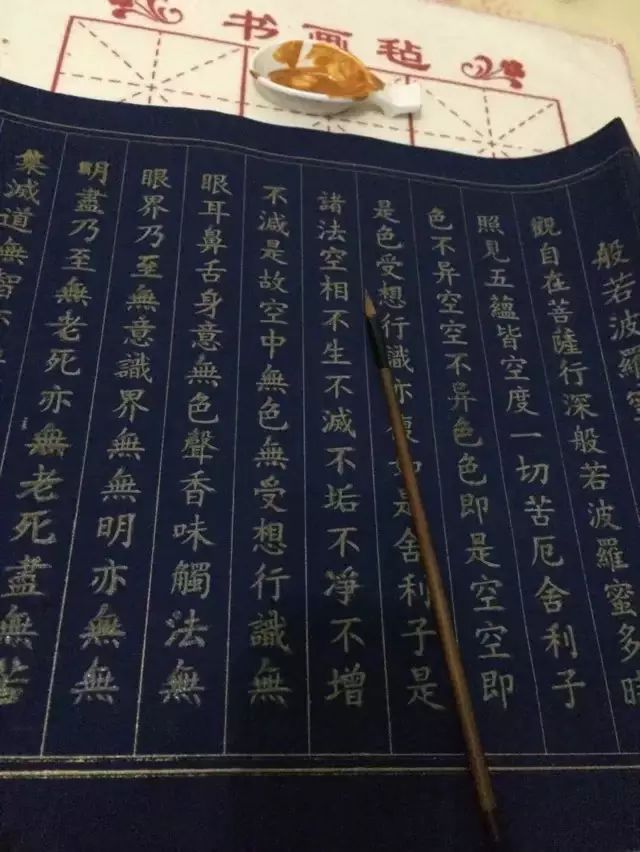 书画毡
般若波羅
觀自在菩薩行深般若波羅蜜多時
照見五蘊皆空度一切苦厄舍利子
色不异空空不异色色即是空空即
是色受想行識亦復如是舍利子是
諸法空相不生不滅不垢不凈不增
不減是故空中無色無受想行識無
眼耳鼻舌身意無色聲香味觸法無
眼界乃至無意識界無無明亦無無
明盡乃至無老死亦無老死盡無苦
集滅道無智亦